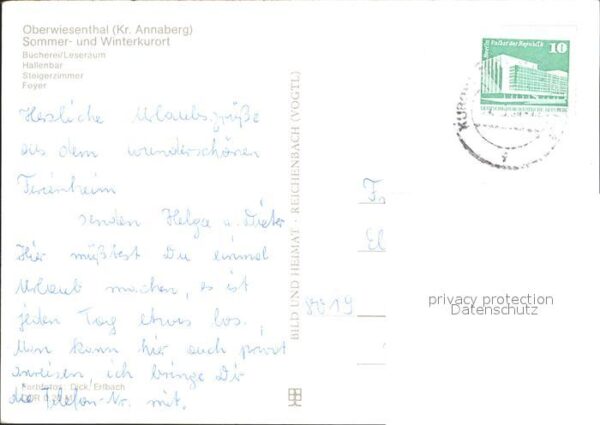 Oberwiesenthal (Kr. Annaberg)
Sommer- und Winterkurort
Bücherei/Leseraum
Hallenbar
Steigerzimmer
Foyer
Herzliche Urlaubsgrüße
aus dem wunderschönen
Ferienheim
senden Helga u. Dieter
Hier müßtest Du einmal
Urlaub machen, es ist
jeden Tag etwas los.
Man kann hier auch privat
anreisen, ich bringe Dir
die Telefon-Nr. mit.
Farbfotos: Dick, Erlbach
BILD UND HEIMAT · REICHENBACH (VOGTL)
Berlin Palast der Republik 10
8019
privacy protection
Datenschutz